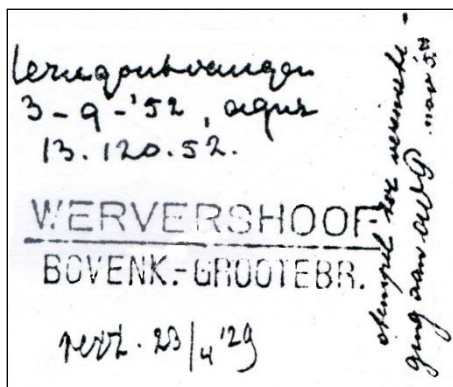 terugontvangen
3-9-'52, agnr
13.120.52.
WERVERSHOOF
BOVENK.-GROOTEBR.
verz. 23/4 '29
stempel ter vernieti-
ging aan